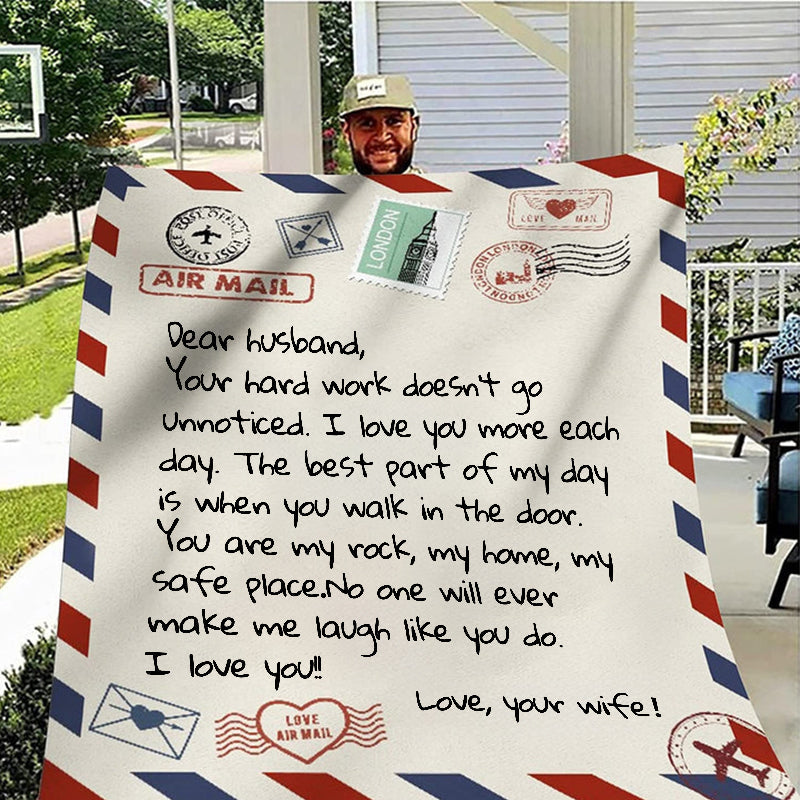 POST OFFICE
AIR MAIL
LONDON
LOVE MAIL
LONDON LONDON
LONDON
Dear husband,
Your hard work doesn't go
unnoticed. I love you more each
day. The best part of my day
is when you walk in the door.
You are my rock, my home, my
safe place.No one will ever
make me laugh like you do.
I love you!!
Love, your wife!
LOVE
AIR MAIL